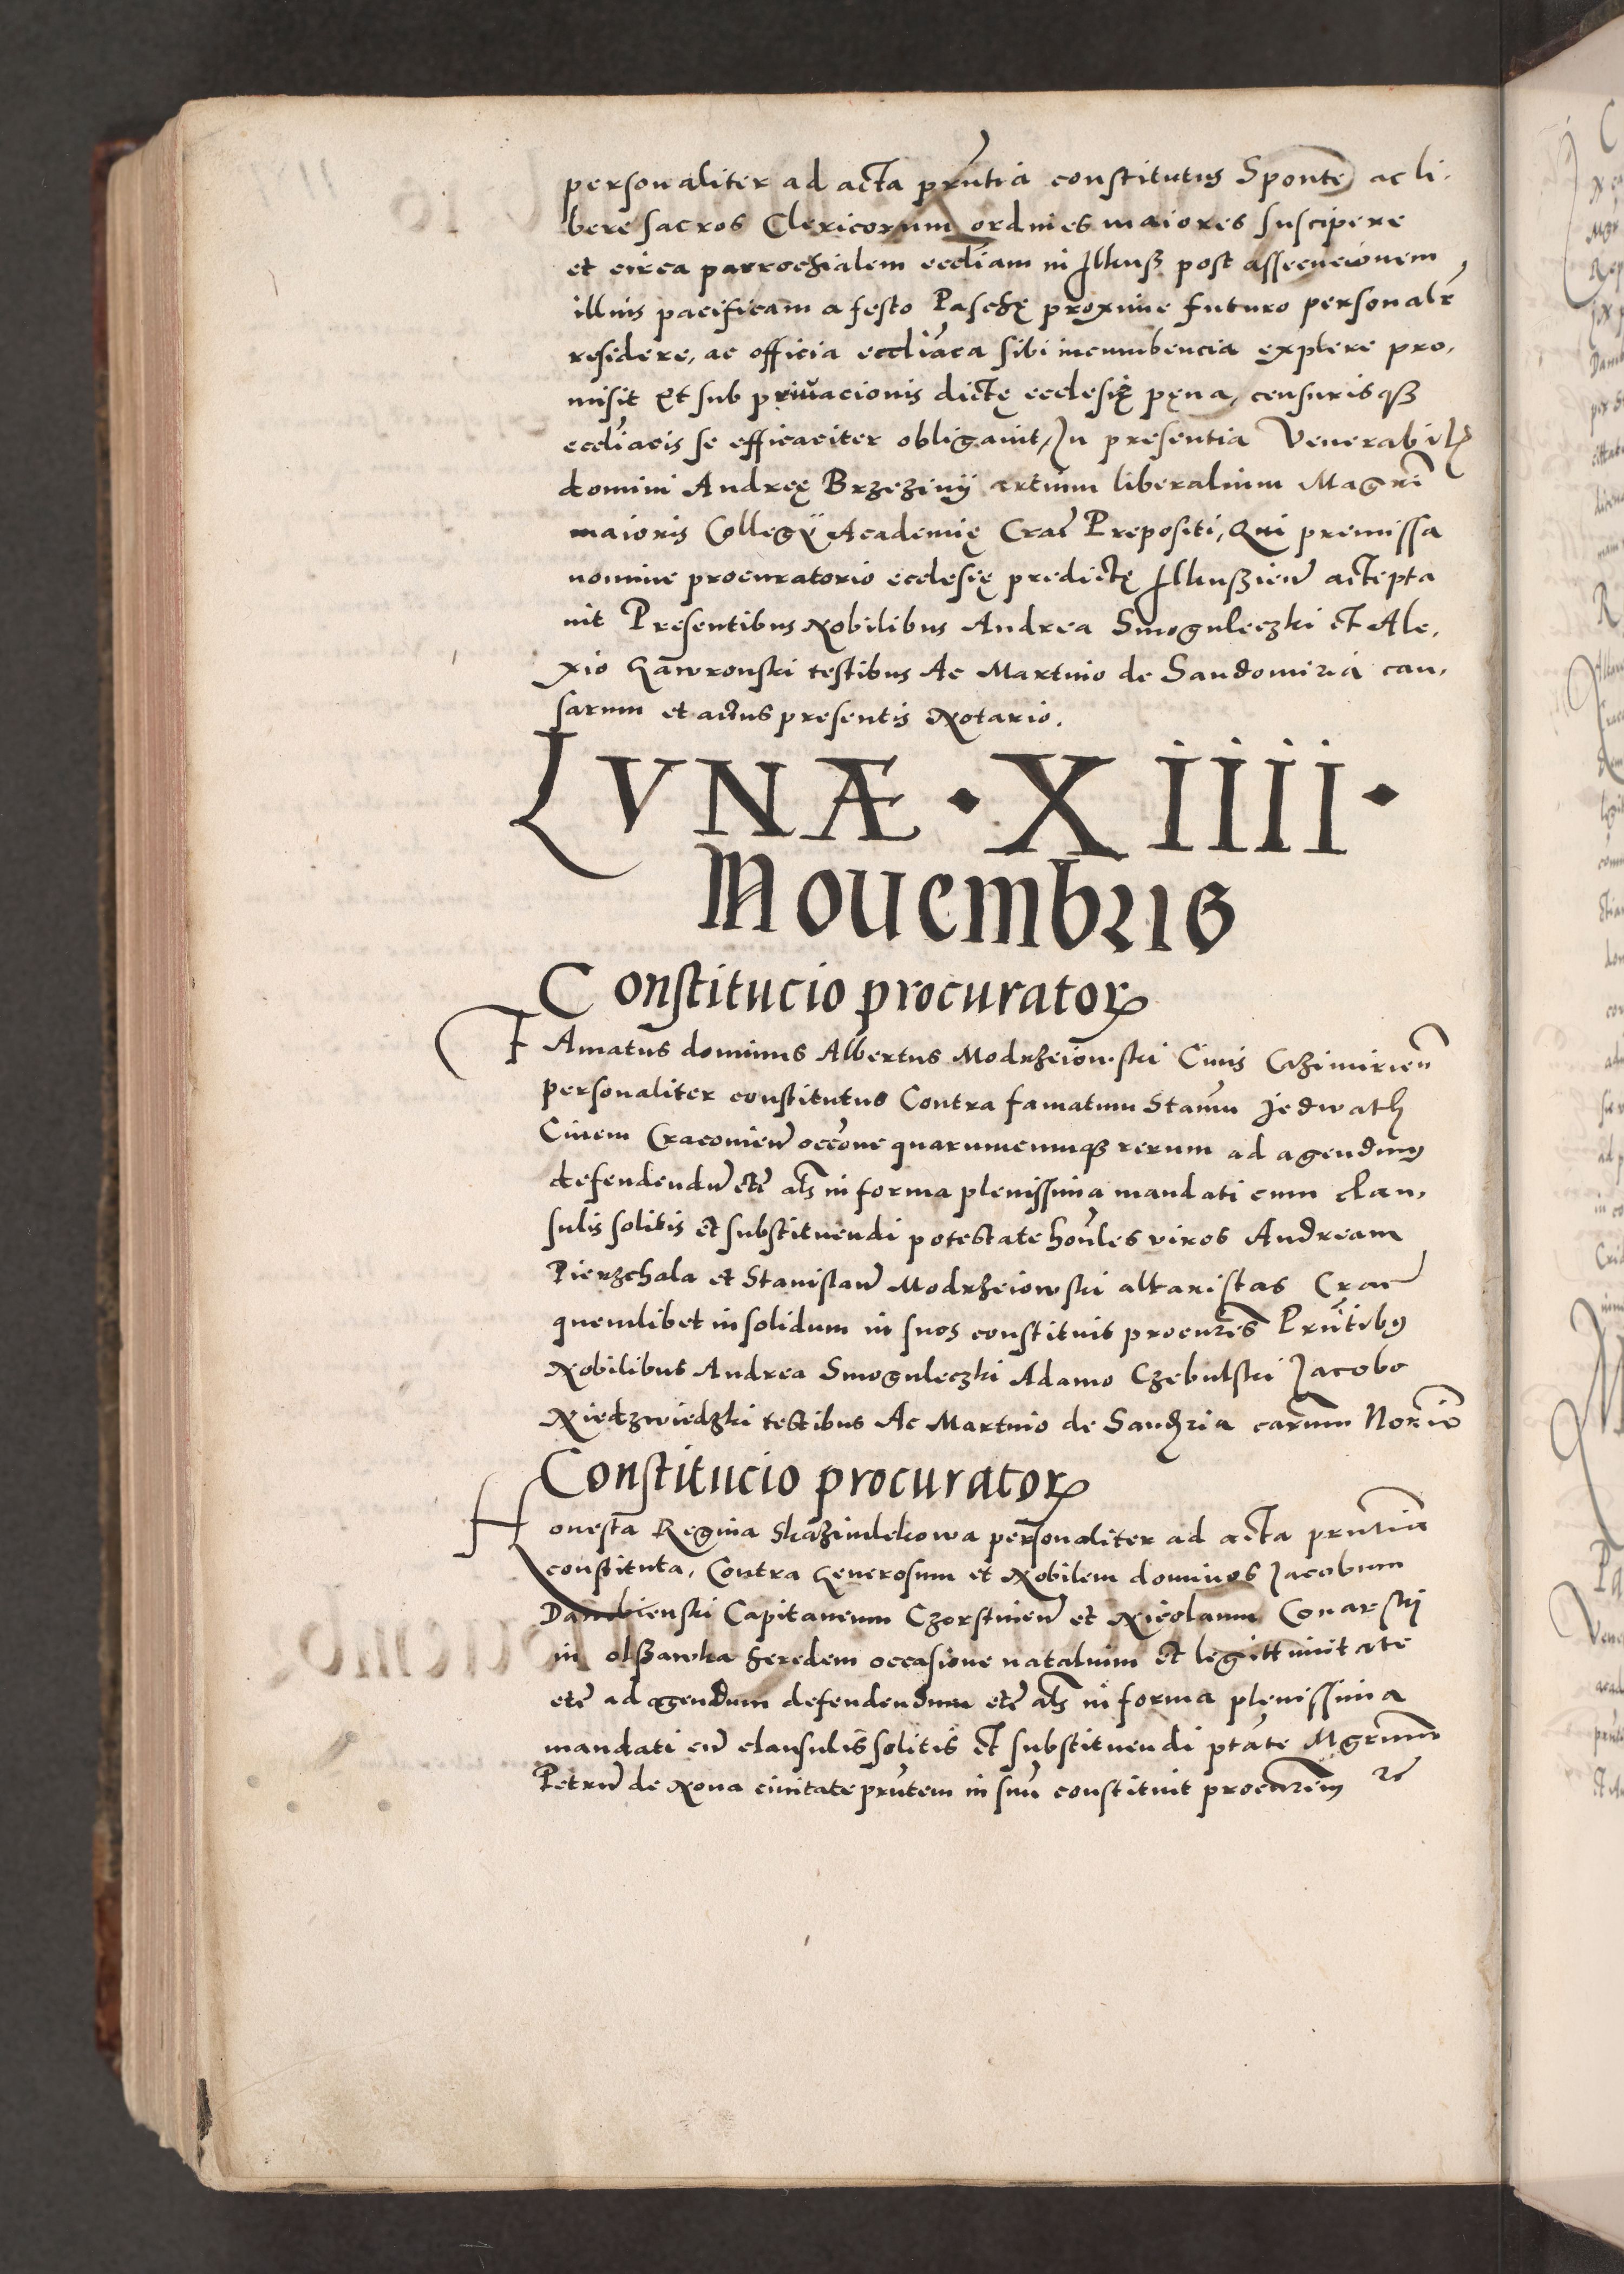 personaliter ad acta prntia constitutus Sponte ac li-
bere sacros Clericorum ordines maiores suscipere
et circa parrochialem eccliam in Ilkusz post assecucionem
illius pacificam a festo Paschę proxime futuro personalr
residere, ac officia eccliaca sibi incumbencia explere pro-
misit Et sub privacionis dictę ecclesię pęna, censurisqz
eccliacis se efficaciter obligavit, In presentia Venerabilis
domini Andreę Brzeziny artium liberalium Magri
maioris Collegÿ Academię Crac Prepositi, Qui premissa
nomine procuratorio ecclesię predictę Ilkuszien acTepta
uit Presentibus Nobilibus Andrea Smoguleczki et Ale-
xio Gawronski testibus Ac Martino de Sandomiria cau-
sarum et actus presentis Notario.
LVNÆ · XIIII ·
Nouembris
Constitucio procurator
FAmatus dominus Albertus Modrzeiowski Ciuis Cazimirien
personaliter constitutus Contra famatum Stanm Jedwath
Ciuem Cracouien occone quarumcumqz rerum ad agendum
defendendu etc als in forma plenissima mandati cum clau-
sulis solitis et substituendi potestate honles viros Andream
Pierzchala et Stanislau Modrzeiowski altaristas Crac
quemlibet in solidum in suos constituit procures Prntibus
Nobilibus Andrea Smoguleczki Adamo Czebulski Jacobo
Niedzwiedzki testibus Ac Martino de Sandria carum Norio
Constitucio procurator
Honesta Regina Skazimlekowa personaliter ad acta prntia
constituta, Contra Generosum et Nobilem dominos Jacobum
Dambienski Capitaneum Czorstinien et Nicolaum Conarski
in olszawka heredem occasione natalium et legittimitate
etc ad agendum defendendum etc als in forma plenissima
mandati cu clausulis solitis et substituendi ptate Mgrum
Petru de Noua ciuitate prntem in suu constituit procurem